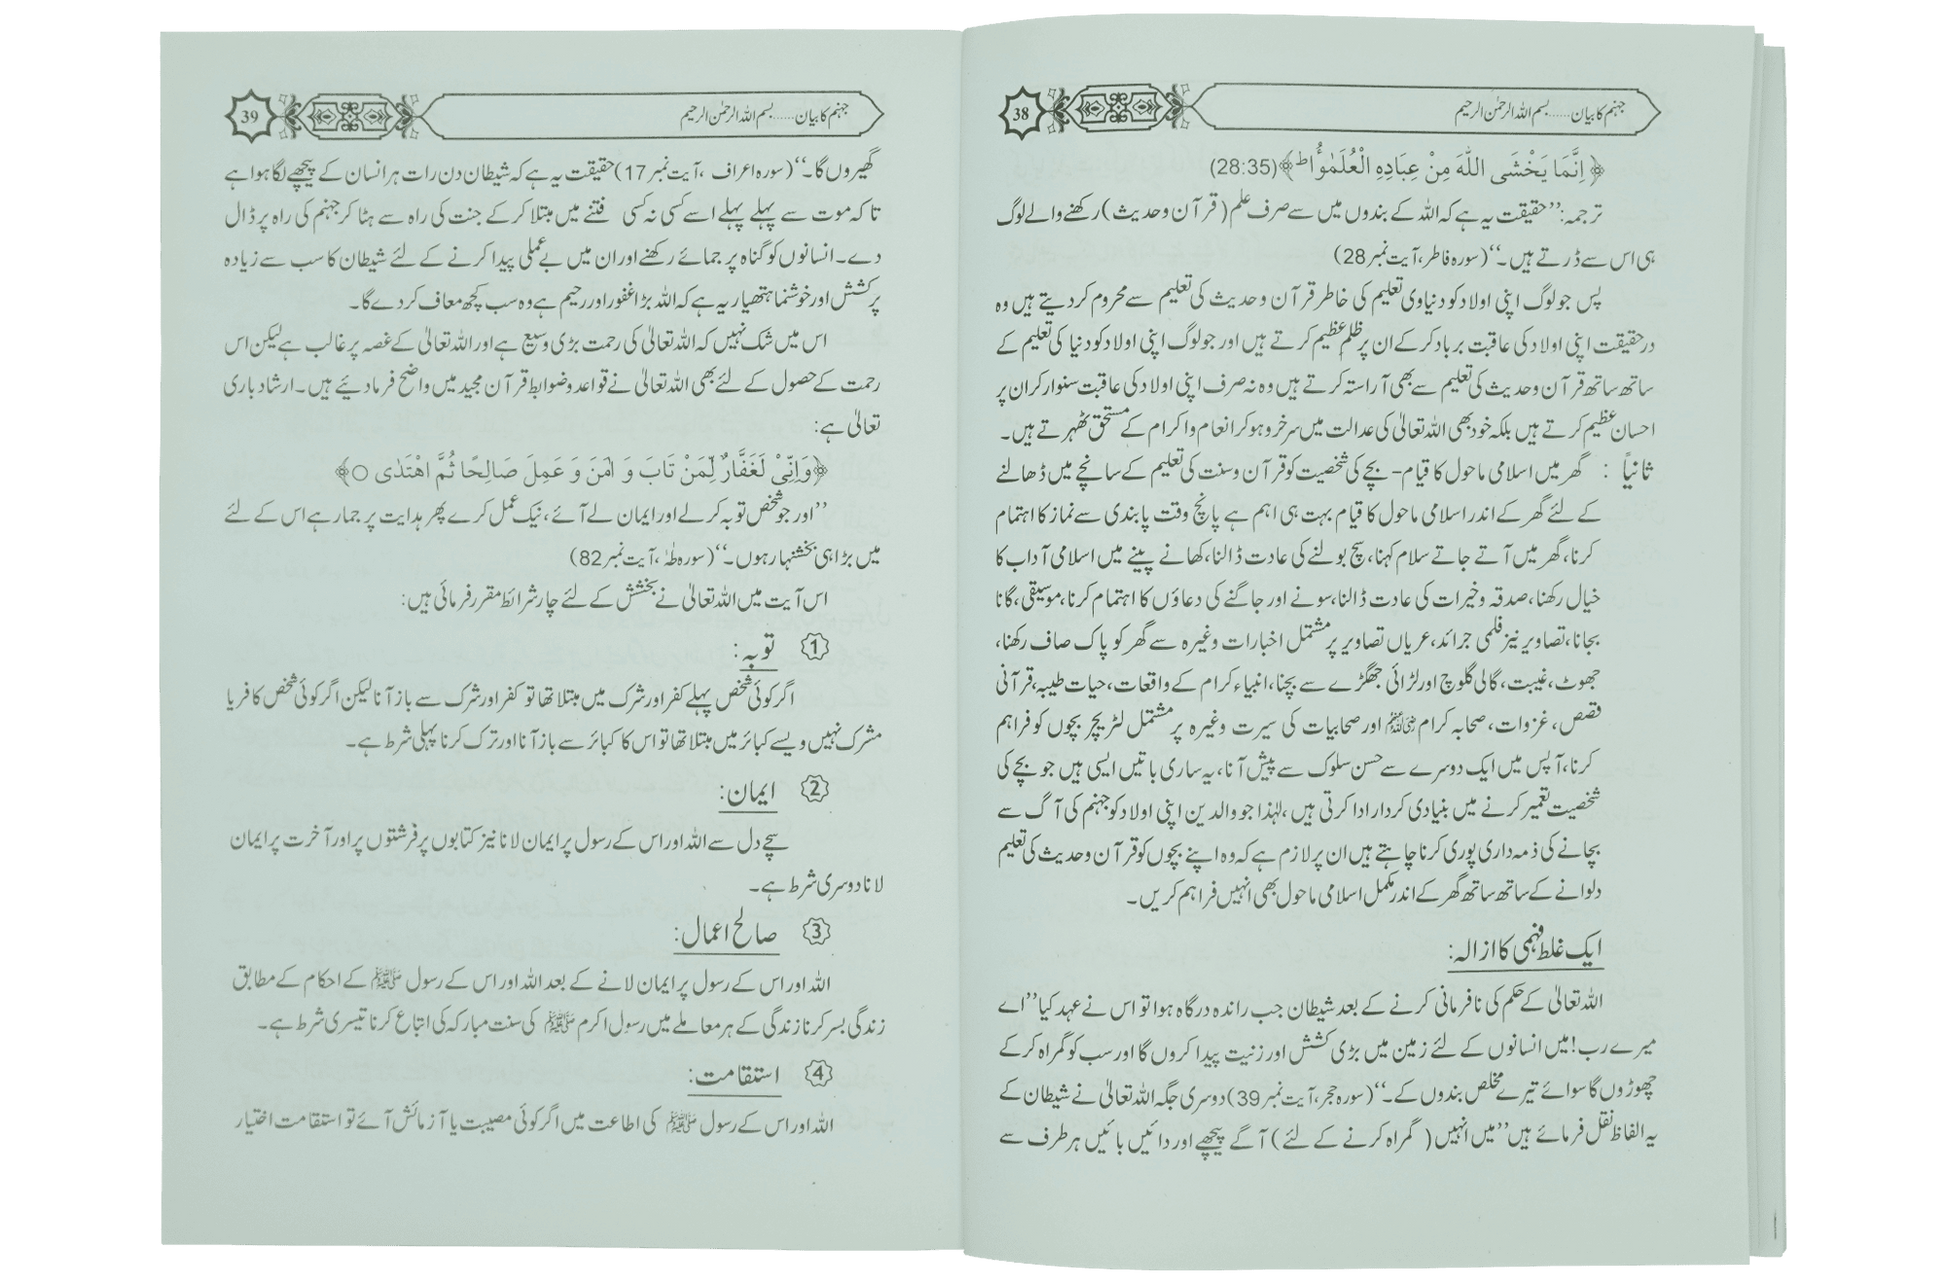 جہنم کا بیان......بسم اللہ الرحمٰن الرحیم
38
﴿ اِنَّمَا يَخْشَى اللّٰهَ مِنْ عِبَادِهِ الْعُلَمٰٓؤُا ط﴾(28:35)
ترجمہ:’’حقیقت یہ ہے کہ اللہ کے بندوں میں سے صرف علم( قرآن و حدیث)رکھنے والے لوگ
ہی اس سے ڈرتے ہیں۔‘‘(سورہ فاطر،آیت نمبر28)
پس جو لوگ اپنی اولاد کو دنیاوی تعلیم کی خاطر قرآن و حدیث کی تعلیم سے محروم کردیتے ہیں وہ
درحقیقت اپنی اولاد کی عاقبت برباد کرکے ان پر ظلم عظیم کرتے ہیں اور جولوگ اپنی اولاد کو دنیا کی تعلیم کے
ساتھ ساتھ قرآن وحدیث کی تعلیم سے بھی آراستہ کرتے ہیں وہ نہ صرف اپنی اولاد کی عاقبت سنوار کران پر
احسان عظیم کرتے ہیں بلکہ خود بھی اللہ تعالیٰ کی عدالت میں سرخرو ہوکر انعام واکرام کے مستحق ٹھہرتے ہیں۔
ثانیاً : گھر میں اسلامی ماحول کا قیام- بچے کی شخصیت کو قرآن وسنت کی تعلیم کے سانچے میں ڈھالنے
کے لئے گھر کے اندر اسلامی ماحول کا قیام بہت ہی اہم ہے پانچ وقت پابندی سے نماز کا اہتمام
کرنا،گھر میں آتے جاتے سلام کہنا،سچ بولنے کی عادت ڈالنا،کھانے پینے میں اسلامی آداب کا
خیال رکھنا،صدقہ وخیرات کی عادت ڈالنا،سونے اور جاگنے کی دعاؤں کا اہتمام کرنا،موسیقی،گانا
بجانا،تصاویر نیز فلمی جرائد،عریاں تصاویر پر مشتمل اخبارات وغیرہ سے گھر کو پاک صاف رکھنا،
جھوٹ،غیبت،گالی گلوچ اور لڑائی جھگڑے سے بچنا،انبیاء کرام کے واقعات،حیات طیبہ،قرآنی
قصص،غزوات،صحابہ کرامﷺ اور صحابیات کی سیرت وغیرہ پر مشتمل لٹریچر بچوں کو فراہم
کرنا،آپس میں ایک دوسرے سے حسن سلوک سے پیش آنا،یہ ساری باتیں ایسی ہیں جو بچے کی
شخصیت تعمیر کرنے میں بنیادی کردار ادا کرتی ہیں،لہٰذا جو والدین اپنی اولاد کو جہنم کی آگ سے
بچانے کی ذمہ داری پوری کرنا چاہتے ہیں ان پر لازم ہے کہ وہ اپنے بچوں کو قرآن وحدیث کی تعلیم
دلوانے کے ساتھ ساتھ گھر کے اندر مکمل اسلامی ماحول بھی انہیں فراہم کریں۔
ایک غلط فہمی کا ازالہ:
اللہ تعالیٰ کے حکم کی نافرمانی کرنے کے بعد شیطان جب راندہ درگاہ ہوا تو اس نے عہد کیا’’اے
میرے رب!میں انسانوں کے لئے زمین میں بڑی کشش اور زنیت پیدا کروں گا اور سب کو گمراہ کرکے
چھوڑوں گا سوائے تیرے مخلص بندوں کے۔‘‘(سورہ حجر،آیت نمبر39)دوسری جگہ اللہ تعالیٰ نے شیطان کے
یہ الفاظ نقل فرمائے ہیں’’میں انہیں( گمراہ کرنے کے لئے) آگے پیچھے اور دائیں بائیں ہر طرف سے
جہنم کا بیان......بسم اللہ الرحمٰن الرحیم
39
گھیروں گا۔‘‘(سورہ اعراف ،آیت نمبر17)حقیقت یہ ہے کہ شیطان دن رات ہر انسان کے پیچھے لگا ہوا ہے
تاکہ موت سے پہلے پہلے اسے کسی نہ کسی فتنے میں مبتلا کرکے جنت کی راہ سے ہٹا کر جہنم کی راہ پر ڈال
دے۔انسانوں کو گناہ پر جمائے رکھنے اور ان میں بے عملی پیدا کرنے کے لئے شیطان کا سب سے زیادہ
پرکشش اور خوشنما ہتھیار یہ ہے کہ اللہ بڑا غفور اور رحیم ہے وہ سب کچھ معاف کردے گا۔
اس میں شک نہیں کہ اللہ تعالیٰ کی رحمت بڑی وسیع ہے اور اللہ تعالیٰ کے غصہ پر غالب ہے لیکن اس
رحمت کے حصول کے لئے بھی اللہ تعالیٰ نے قواعد وضوابط قرآن مجید میں واضح فرمادئیے ہیں۔ارشاد باری
تعالیٰ ہے:
﴿وَاِنِّىْ لَغَفَّارٌ لِّمَنْ تَابَ وَ اٰمَنَ وَ عَمِلَ صَالِحًا ثُمَّ اهْتَدٰى ○﴾
’’اور جو شخص توبہ کرلے اور ایمان لے آئے،نیک عمل کرے پھر ہدایت پر جما رہے اس کے لئے
میں بڑا ہی بخشنہار ہوں۔‘‘(سورہ طٰہٰ،آیت نمبر82)
اس آیت میں اللہ تعالیٰ نے بخشش کے لئے چار شرائط مقرر فرمائی ہیں:
① توبہ:
اگر کوئی شخص پہلے کفر اور شرک میں مبتلا تھا تو کفر اور شرک سے باز آنا لیکن اگر کوئی شخص کافر یا
مشرک نہیں ویسے کبائر میں مبتلا تھا تو اس کا کبائر سے باز آنا اور ترک کرنا پہلی شرط ہے۔
② ایمان:
سچے دل سے اللہ اور اس کے رسول پر ایمان لانا نیز کتابوں پر فرشتوں پر اور آخرت پر ایمان
لانا دوسری شرط ہے۔
③ صالح اعمال:
اللہ اور اس کے رسول پر ایمان لانے کے بعد اللہ اور اس کے رسول ﷺ کے احکام کے مطابق
زندگی بسر کرنا زندگی کے ہر معاملے میں رسول اکرم ﷺ کی سنت مبارکہ کی اتباع کرنا تیسری شرط ہے۔
④ استقامت:
اللہ اور اس کے رسول ﷺ کی اطاعت میں اگر کوئی مصیبت یا آزمائش آئے تو استقامت اختیار